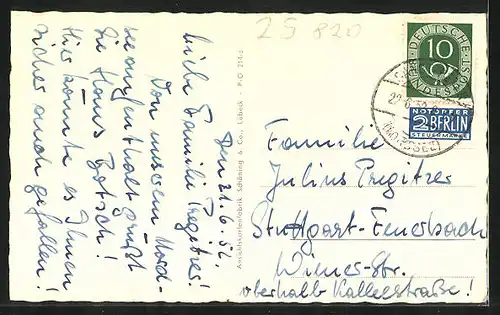 25 820
Den 21.6.52.
Liebe Familie Pregitzer!
Von unserem Nord-
seeaufenthalt grüßt
Sie Hans
Hier könnte es Ihnen
sicher auch gefallen!
Ansichtskartenfabrik Schöning & Co., Lübeck
DEUTSCHE BUNDESPOST
10
NOTOPFER
2 BERLIN
STEUERMARKE
(NORDSEE)
Familie
Julius Pregitzer
Stuttgart-Feuerbach
Wiener-Str.
oberhalb Kallestraße!